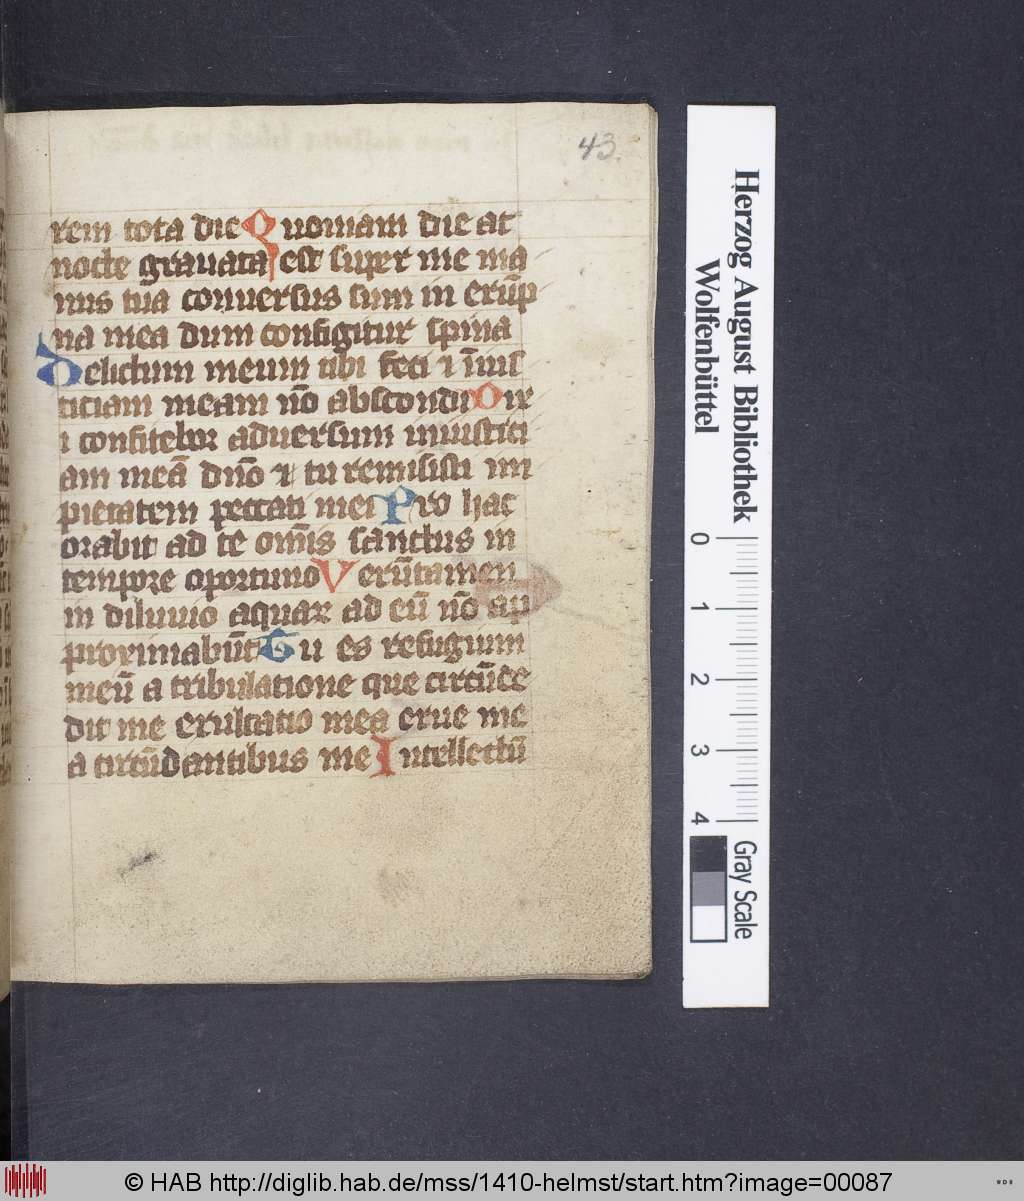 43.
rem tota die Quoniam die ac
nocte grauata est super me ma
nus tua conuersus sum in erūp
na mea dum configitur spina
Delictum meum tibi feci ⁊ īnius
ticiam meam nō abscondi Dix
i confitebor aduersum iniusticі
am meā dn̄o ⁊ tu remisisti im
pietatem peccati mei Pro hac
orabit ad te om̄is sanctus in
tempore oportuno Verūtamen
in diluuio aquaꝝ ad eū nō ap
proximabūt Tu es refugium
meū a tribulatione que circūde
dit me exultatio mea erue me
a circūdantibus me Intellectū
Herzog August Bibliothek
Wolfenbüttel
0 1 2 3 4
Gray Scale
© HAB http://diglib.hab.de/mss/1410-helmst/start.htm?image=00087